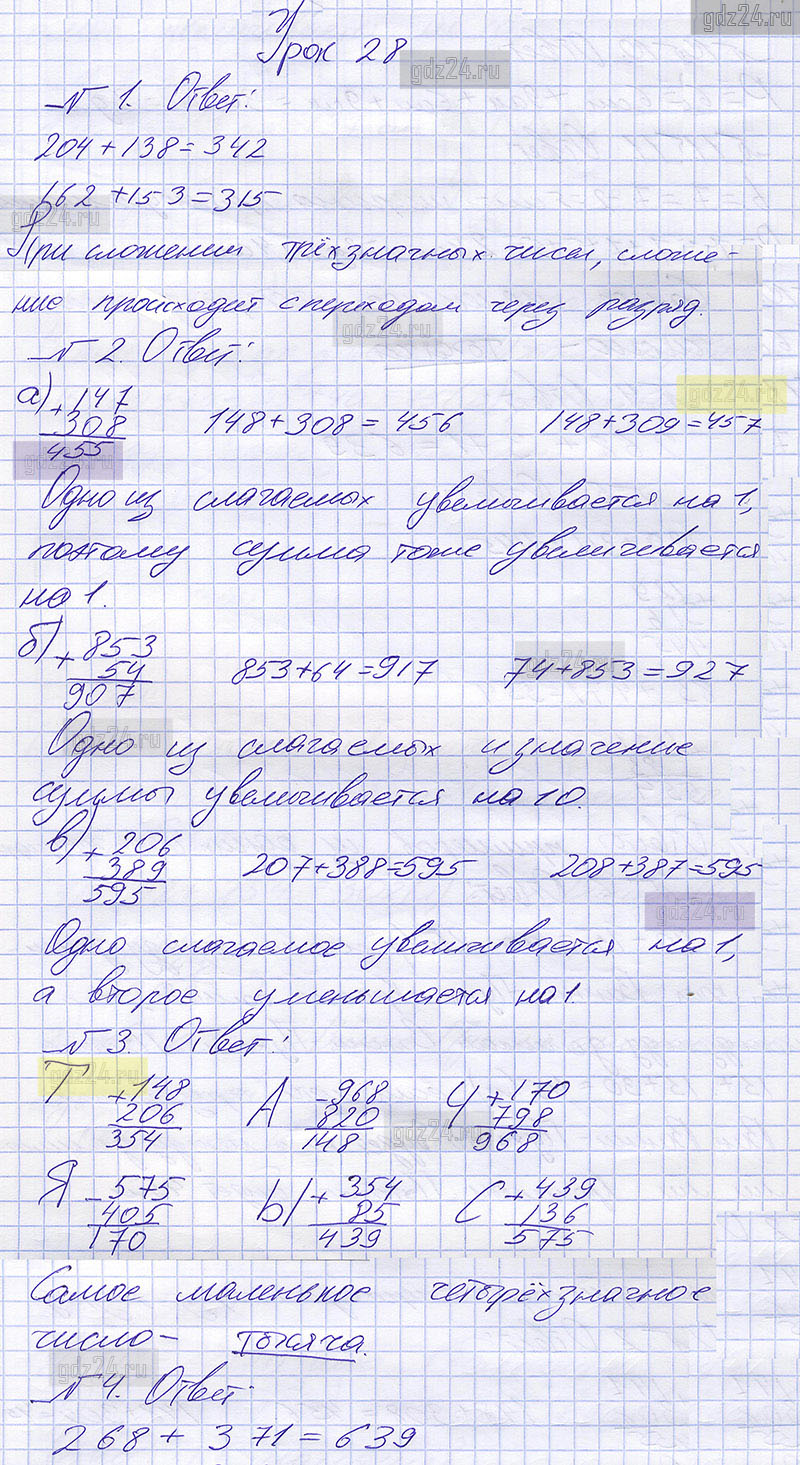 gdz24.ru
Урок 28
gdz24.ru
№ 1. Ответ:
204 + 138 = 342
162 + 153 = 315
gdz24.ru
При сложении трёхзначных чисел, сложе-
ние происходит с переходом через разряд.
gdz24.ru
№ 2. Ответ:
gdz24.ru
а) + 147
308
455
148 + 308 = 456
148 + 309 = 457
gdz24.ru
Одно из слагаемых увеличивается на 1,
поэтому сумма тоже увеличивается
на 1.
б) + 853
54
907
853 + 64 = 917
74 + 853 = 927
gdz24.ru
gdz24.ru
Одно из слагаемых и значение
суммы увеличивается на 10.
в) + 206
389
595
207 + 388 = 595
208 + 387 = 595
gdz24.ru
Одно слагаемое увеличивается на 1,
а второе уменьшается на 1
№ 3. Ответ:
gdz24.ru
Т + 148
206
354
А - 968
820
148
Ч + 170
798
968
gdz24.ru
Я - 575
405
170
Ы + 354
85
439
С + 439
136
575
Самое маленькое четырёхзначное
число - тысяча.
gdz24.ru
№ 4. Ответ:
268 + 371 = 639